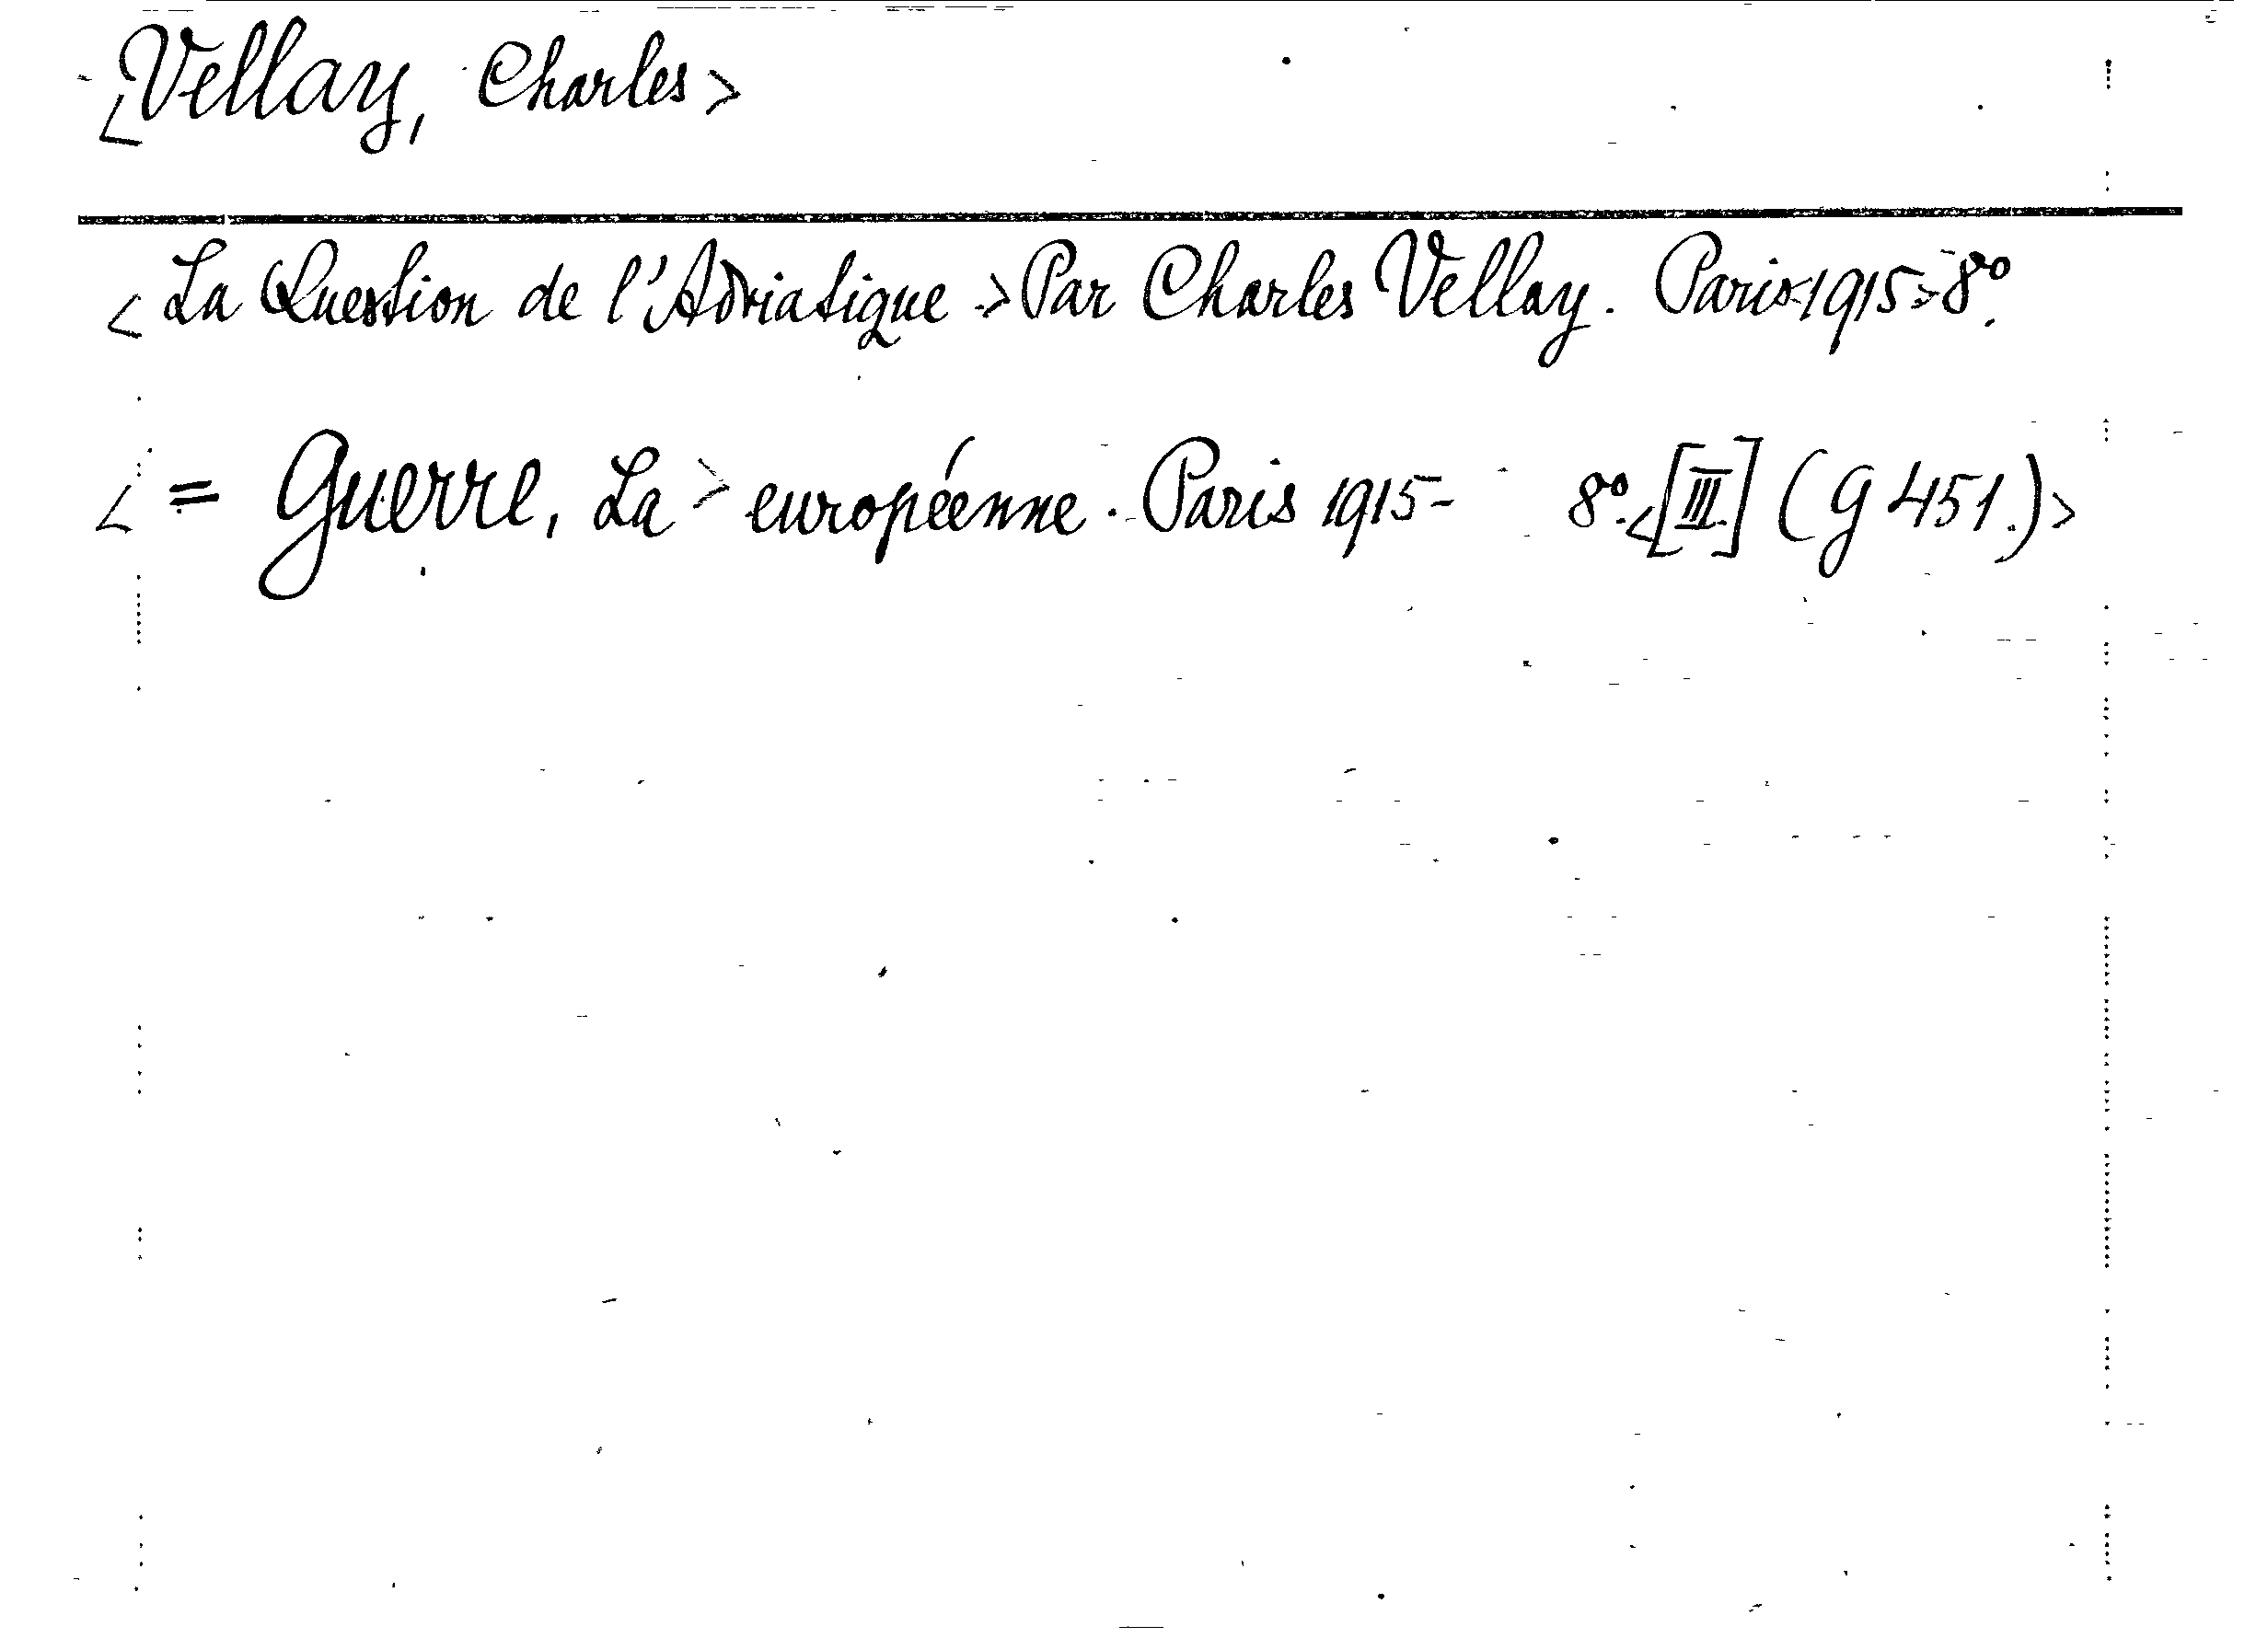 <Vellay, Charles>
<La Question de l'Adriatique> Par Charles Vellay. Paris<1915>8°.
<= Guerre, La> européenne. Paris 1915- 8°.<[III.] (G 451.)>